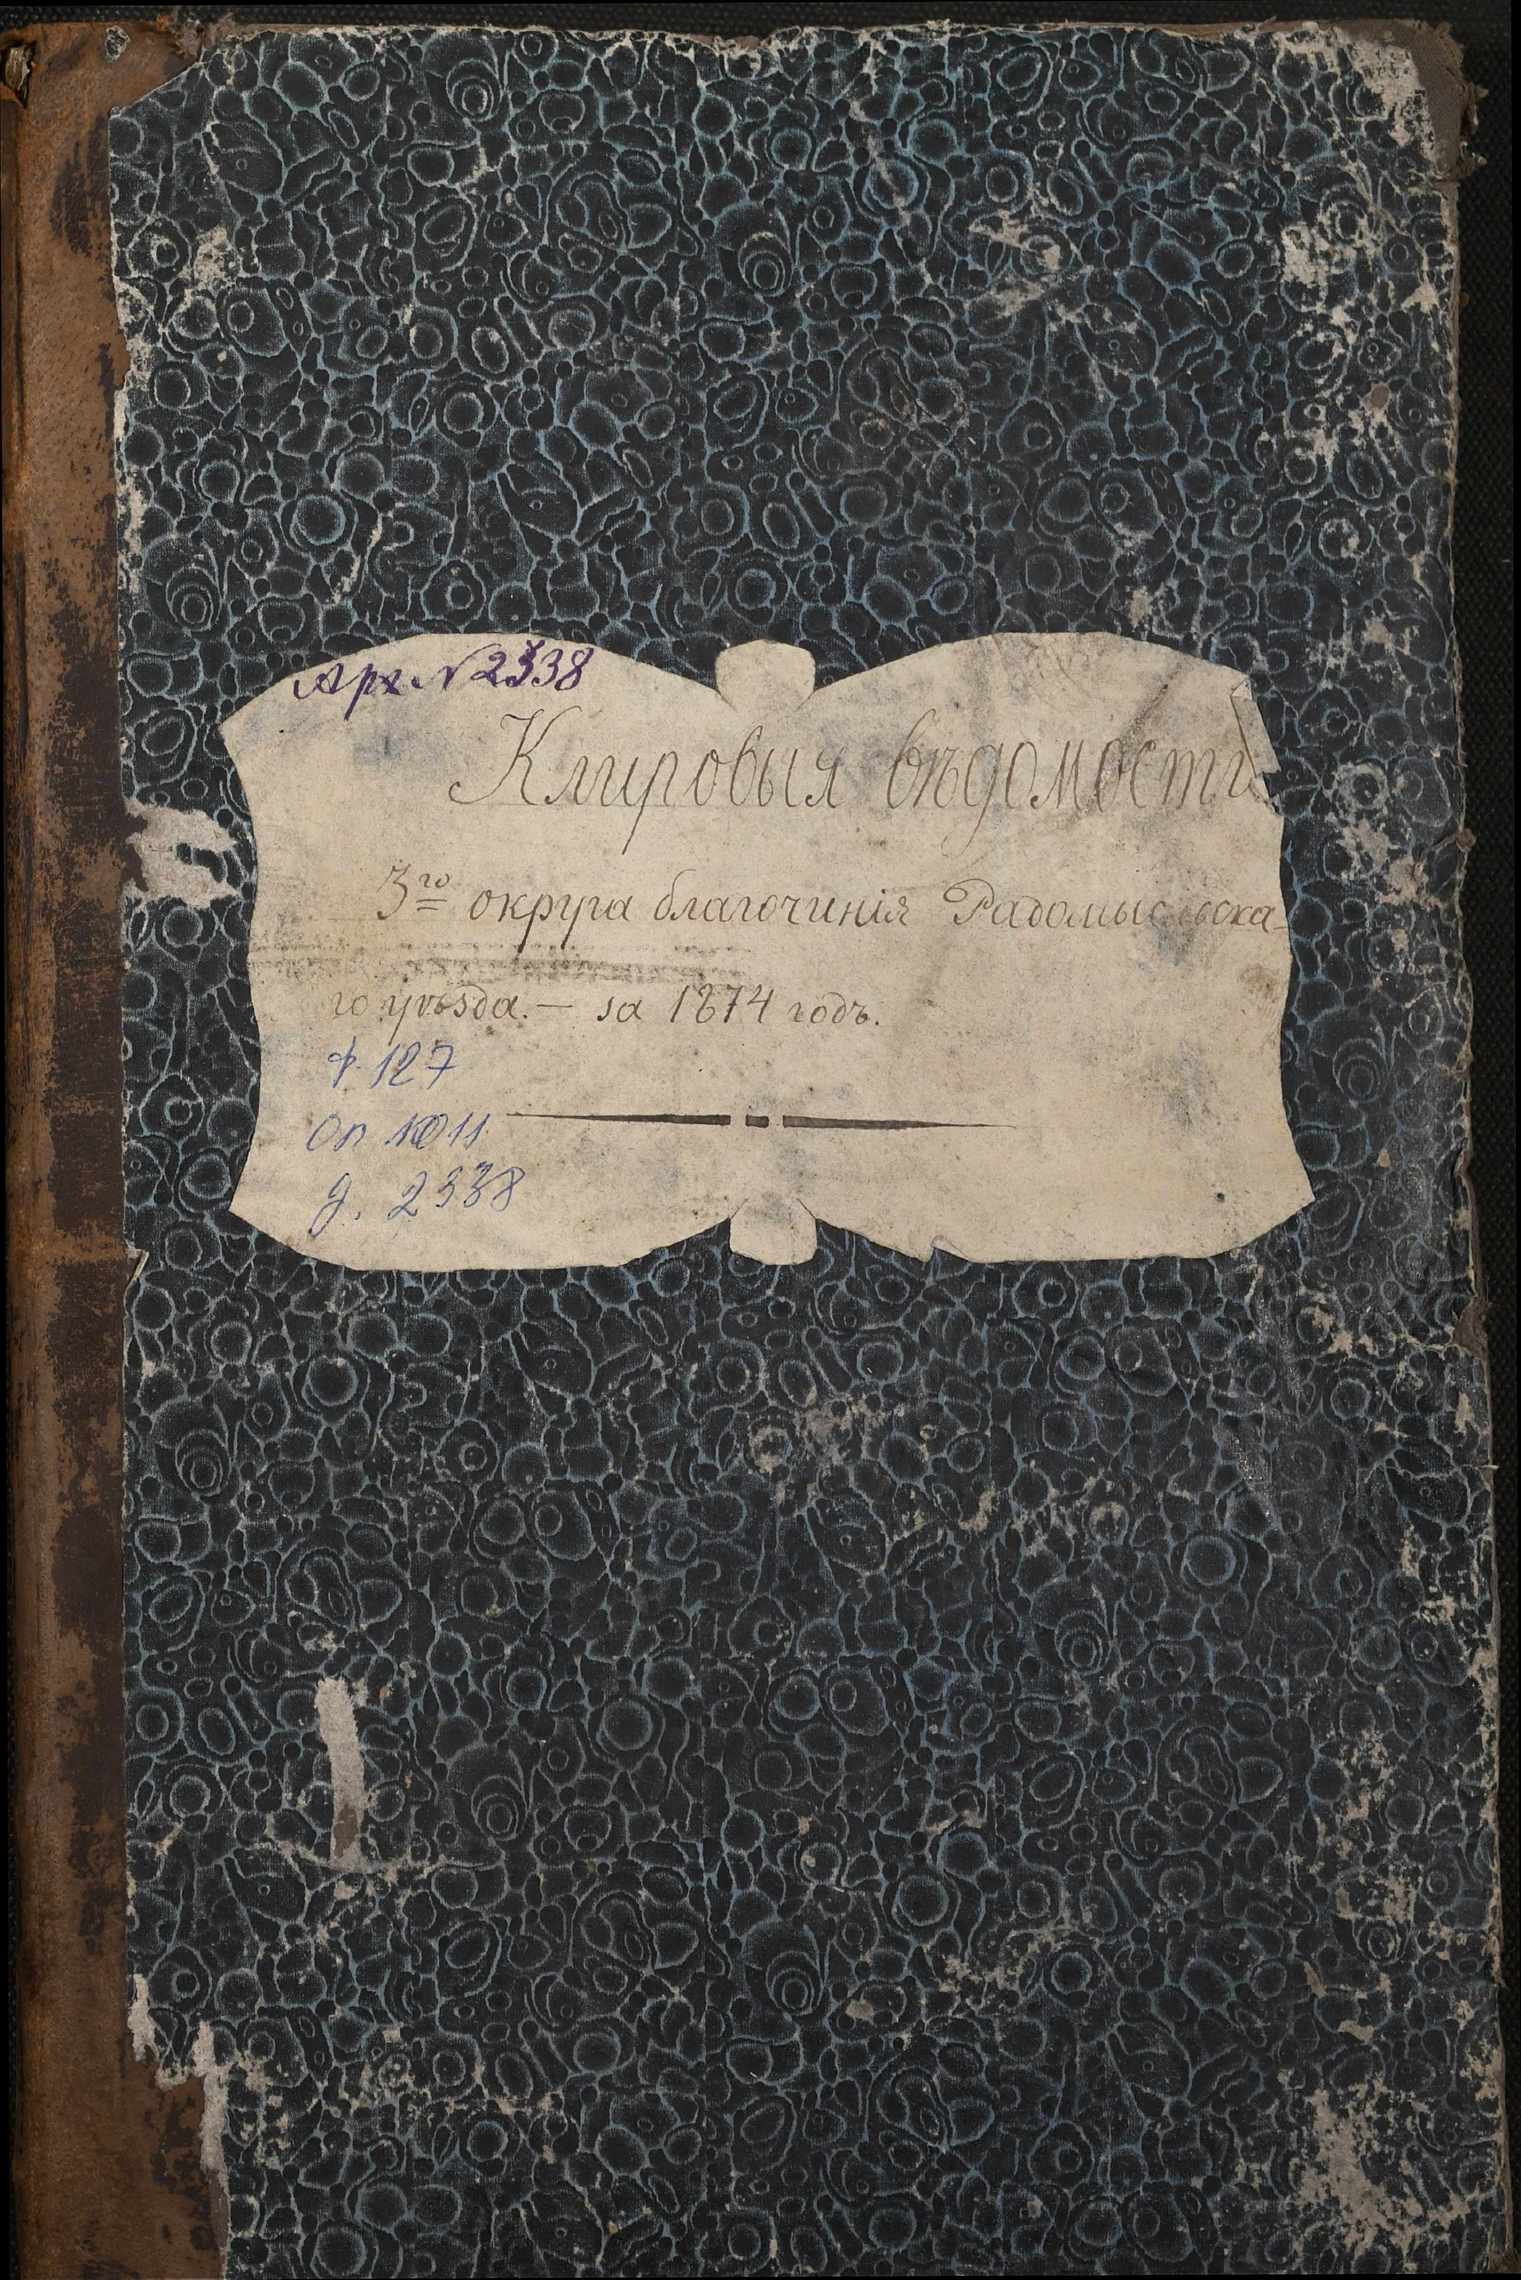 Арх. № 2338
Клировыя вѣдомости
3го округа благочинія Радомысльска-
го уѣзда. — за 1874 годъ.
ф. 127
Оп 1011
д. 2338